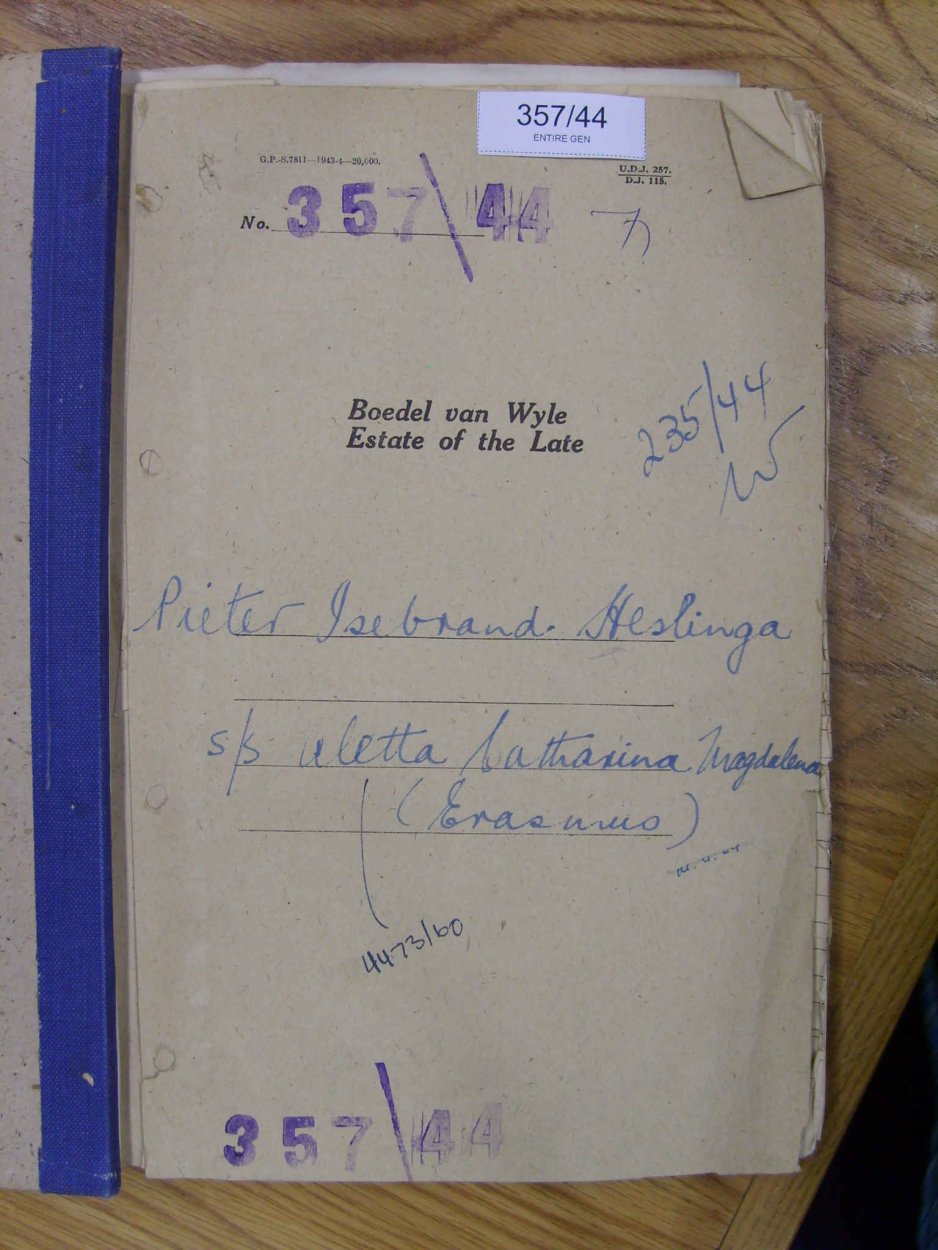 357/44
ENTIRE GEN
G.P.-S.7811—1943-4—20,000.
U.D.J. 257.
D.J. 115.
No. 357/44
235/44
Boedel van Wyle
Estate of the Late
Pieter Isebrand. Heslinga
s/s Aletta Catharina Magdalena
(Erasmus)
4473/60
357/44